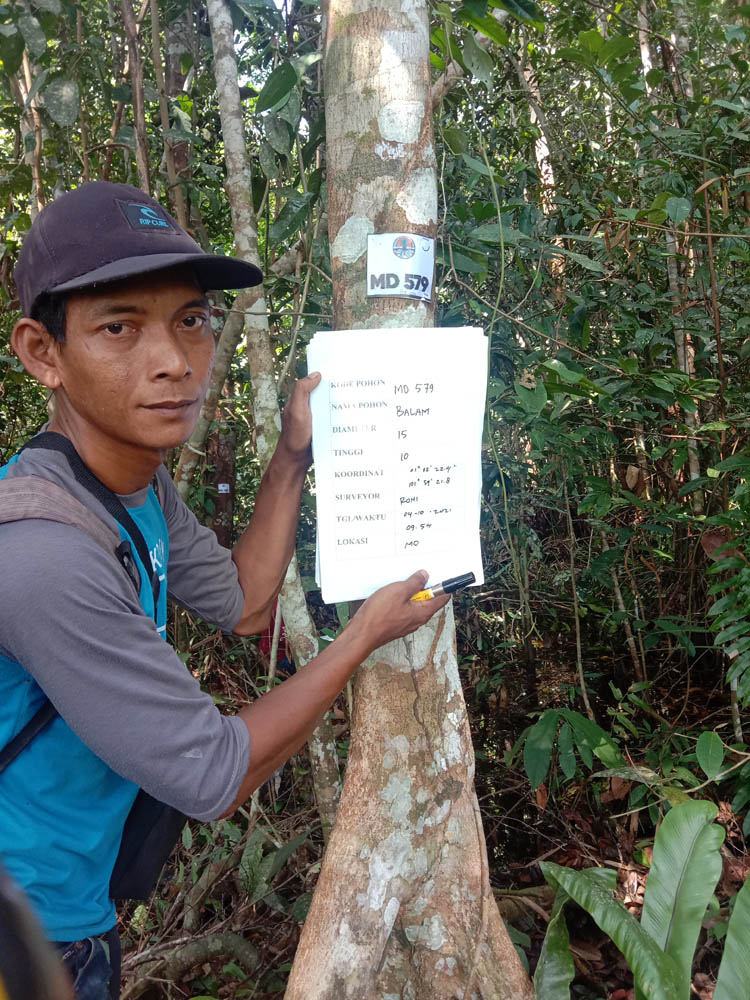 RIP CURL
MD 579
KODE POHON MD 579
NAMA POHON BALAM
DIAMETER 15
TINGGI 10
KOORDINAT 01° 12' 22.4"
101° 59' 21.8
SURVEYOR ROMI
TGL/WAKTU 04-10-2021
09:54
LOKASI MD